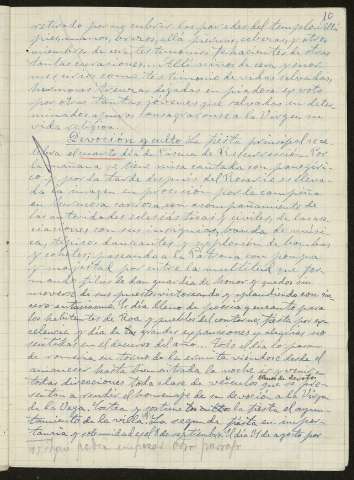 10
retirado por no cubrir las paredes del templo. Allí
pies, manos, brazos, allá piernas, cabezas y otros
miembros de cera, testimonios fehacientes de otras
tantas curaciones. Allí niños de cera y nume-
rosos como testimonio de vidas salvadas,
hermosas trenzas dejadas en piadoso ex voto
por otras tantas jóvenes que salvadas en deter-
minados apuros consagraronse a la Virgen en
vida religiosa.
Devoción y culto. La fiesta principal se ce-
lebra el cuarto día de Pascua de Resurrección. Por
la mañana se tiene misa cantada con panegíri-
co y por la tarde después del Rosario es lleva-
da la imagen en procesión por la campiña
en hermosa carroza con acompañamiento de
las autoridades eclesiásticas y civiles, de las aso-
ciaciones con sus insignias, banda de músi-
ca, típicos danzantes y explosión de bombas
y cohetes, paseando a la Patrona con pompa
y majestad por entre la multitud que for-
mando filas le dan guardia de honor y quedos sin
moverse de sus puestos vitoreando y aplaudiendo con in-
tenso entusiasmo. El día lleno de gloria y encanto para
los habitantes de Roa y pueblos del contorno, fiesta por ex-
celencia y día de grandes expansiones y alegrías no
sentidas en el decurso del año. Todo el día lo pasan
de romería en torno de la ermita viéndose desde el
amanecer hasta bien entrada la noche ir y venir en
todas direcciones toda clase de vehículos llenos de devotos que se pre-
sentan a rendir el homenaje de su devoción a la Virgen
de la Vega. Costea y sostiene la fiesta el ayun-
tamiento de la villa. La segunda fiesta en impor-
tancia y solemnidad es el 8 de septiembre. El día 15 de agosto por